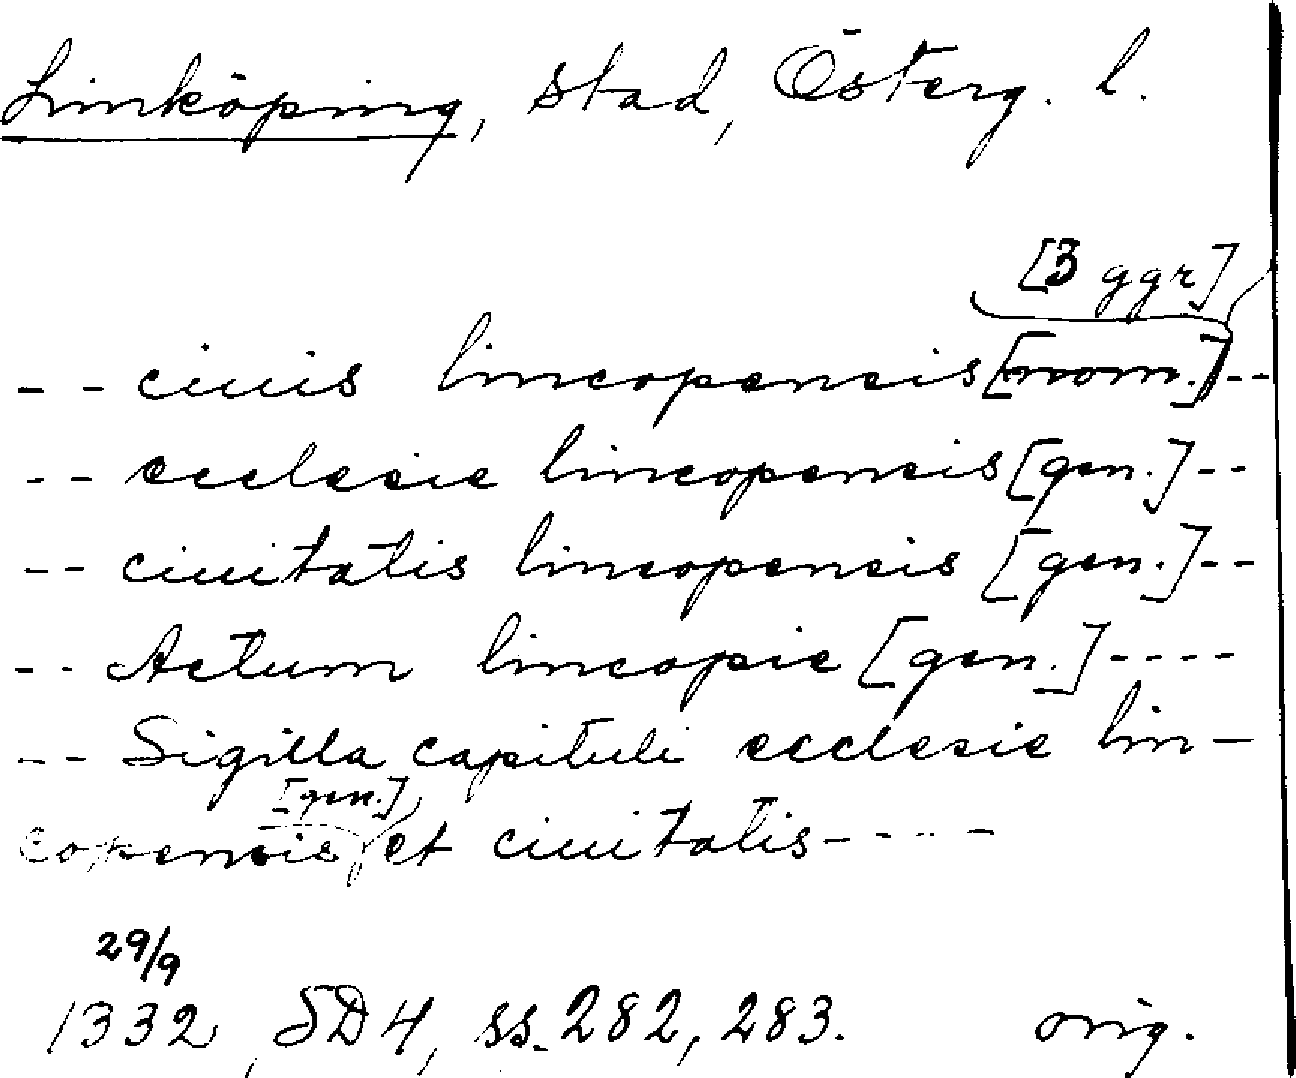 Linköping, stad, Österg. l.
[3 ggr]
-- ciuis lincopensis [nom.] --
-- ecclesie lincopensis [gen.] --
-- ciuitatis lincopensis [gen.] --
-- Actum lincopie [gen.] ----
-- Sigilla capituli ecclesie lin-
[gen.]
copensis et ciuitatis ----
29/9
1332, SD 4, ss. 282, 283. orig.